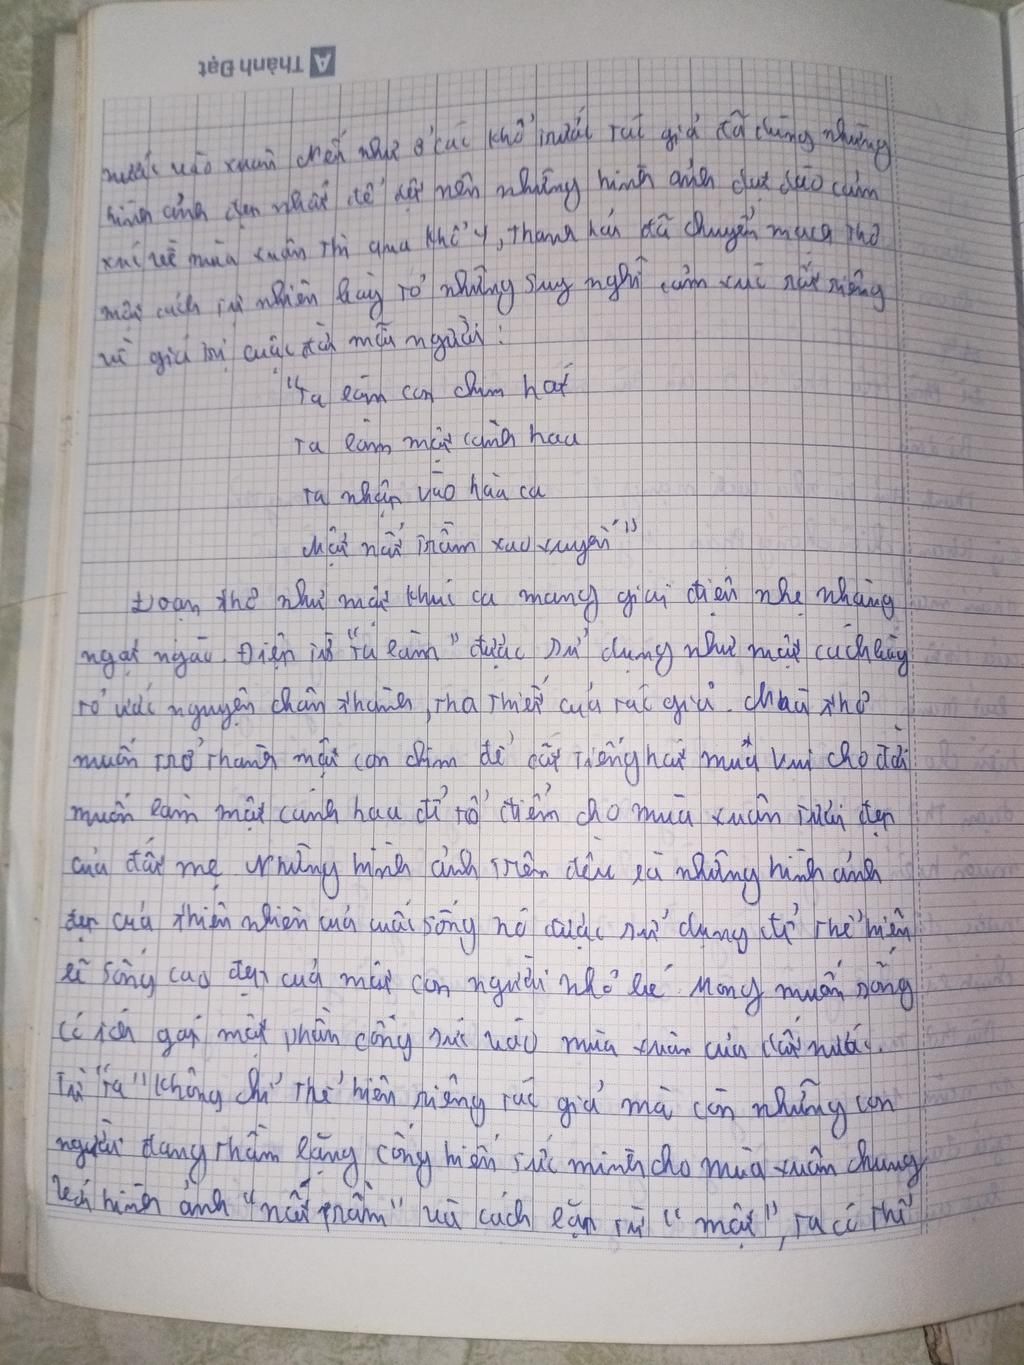 Thành Đạt
nước vào xuân. Nếu như ở các khổ trước tác giả đã dùng những
hình ảnh đẹp nhất để dệt nên những hình ảnh dạt dào cảm
xúc về mùa xuân thì qua khổ 4, Thanh Hải đã chuyển mạch thơ
một cách tự nhiên bày tỏ những suy nghĩ cảm xúc rất riêng
về giá trị cuộc đời mỗi người :
"Ta làm con chim hót
Ta làm một cành hoa
Ta nhập vào hòa ca
Một nốt trầm xao xuyến"
Đoạn thơ như một khúc ca mang giai điệu nhẹ nhàng
ngọt ngào. Điệp từ "ta làm" được sử dụng như một cách bày
tỏ ước nguyện chân thành, tha thiết của tác giả. Nhà thơ
muốn trở thành một con chim để cất tiếng hát mua vui cho đời
muốn làm một cành hoa để tô điểm cho mùa xuân tươi đẹp
của đất mẹ. Những hình ảnh trên đều là những hình ảnh
đẹp của thiên nhiên của cuộc sống nó được sử dụng để thể hiện
lẽ sống cao đẹp của một con người nhỏ bé. Mong muốn sống
có ích góp một phần công sức vào mùa xuân của đất nước.
Từ "ta" không chỉ thể hiện riêng tác giả mà còn những con
người đang thầm lặng cống hiến sức mình cho mùa xuân chung
Với hình ảnh "nốt trầm" và cách lặp từ "một", ta có thể